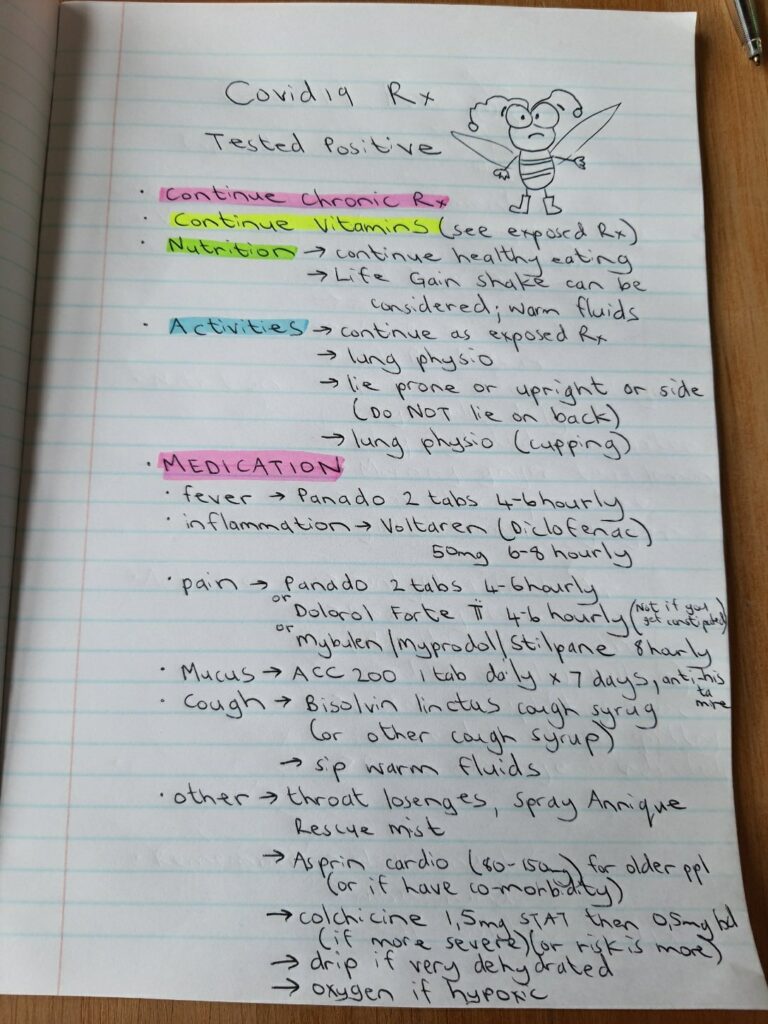 Covid19 Rx
Tested Positive
· Continue Chronic Rx
· Continue Vitamins (see exposed Rx)
· Nutrition → continue healthy eating
→ Life Gain shake can be
considered; warm fluids
· Activities → continue as exposed Rx
→ lung physio
→ lie prone or upright or side
(DO NOT lie on back)
→ lung physio (cupping)
· MEDICATION
· fever → Panado 2 tabs 4-6hourly
· inflammation → Voltaren (Diclofenac)
50mg 6-8 hourly
· pain → Panado 2 tabs 4-6hourly
or Dolorol Forte ii 4-6 hourly (Not if you get constipated)
or Mybulen/Myprodol/Stilpane 8hourly
· Mucus → ACC 200 1 tab daily x 7 days, anti-histamine
· Cough → Bisolvin linctus cough syrug
(or other cough syrup)
→ sip warm fluids
· other → throat losenges, spray Annique
Rescue mist
→ Asprin cardio (80-150mg) for older ppl
(or if have co-morbidity)
→ colchicine 1,5mg STAT then 0,5mg bd
(if more severe) (or risk is more)
→ drip if very dehydrated
→ oxygen if hypoxic